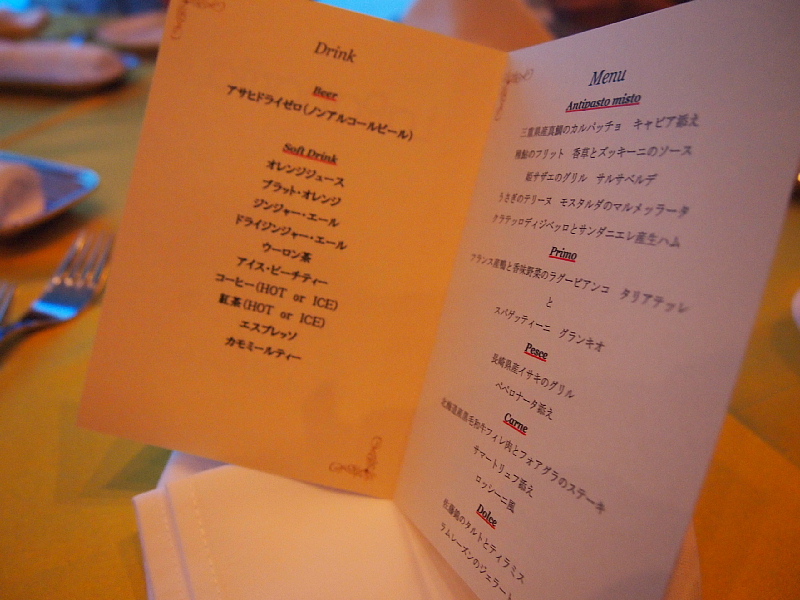 Drink
Beer
アサヒドライゼロ(ノンアルコールビール)
Soft Drink
オレンジジュース
ブラット・オレンジ
ジンジャー・エール
ドライジンジャー・エール
ウーロン茶
アイス・ピーチティー
コーヒー(HOT or ICE)
紅茶(HOT or ICE)
エスプレッソ
カモミールティー
Menu
Antipasto misto
三重県産真鯛のカルパッチョ キャビア添え
稚鮎のフリット 香草とズッキーニのソース
姫サザエのグリル サルサベルデ
うさぎのテリーヌ モスタルダのマルメッラータ
クラテッロディジベッロとサンダニエレ産生ハム
Primo
フランス産鴨と香味野菜のラグービアンコ タリアテッレ
と
スパゲッティーニ グランキオ
Pesce
長崎県産イサキのグリル
ペペロナータ添え
Carne
北海道産黒毛和牛フィレ肉とフォアグラのステーキ
サマートリュフ添え
ロッシーニ風
Dolce
佐藤錦のタルトとティラミス
ラムレーズンのジェラート